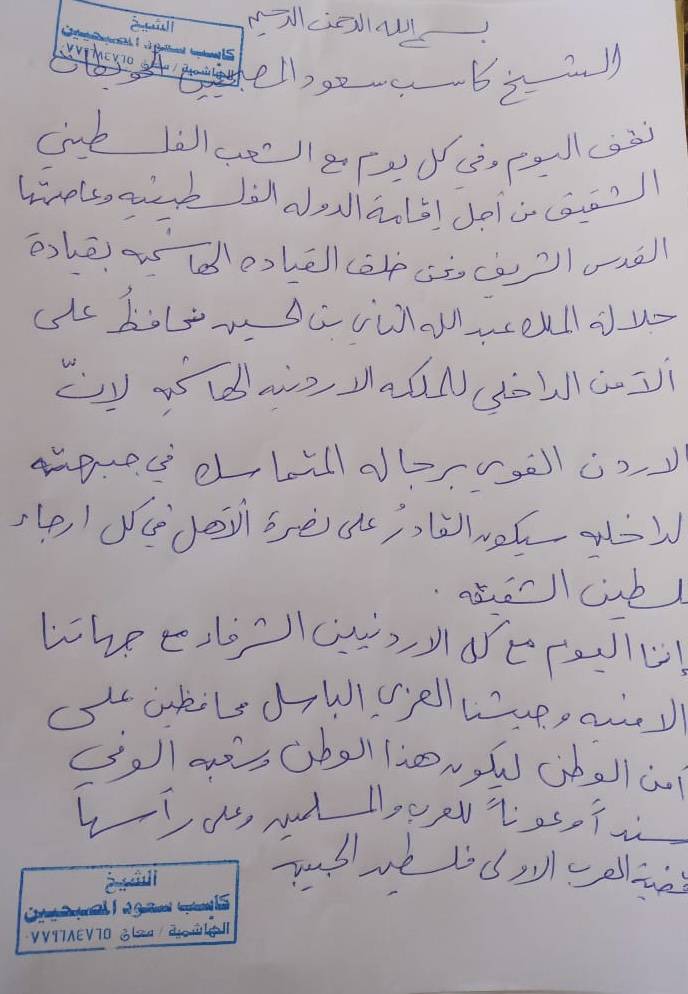 بسم الله الرحمن الرحيم
الشيخ
كاسب سعود المصبحيين
الهاشمية / معان ٠٧٧٦٨٤٧٦٥
الشيخ كاسب سعود المصبحيين
نقف اليوم وفي كل يوم مع الشعب الفلسطيني
الشقيق من أجل إقامة الدوله الفلسطينيه وعاصتها
القدس الشريف ونحن خلف القياده الهاشميه بقيادة
جلالة الملك عبد الله الثاني بن الحسين نحافظُ على
الآمن الداخلي للملكه الاردنيه الهاشميه لإنّ
الاردن القوي برجاله المتماسك في جبهته
لداخليه سيكون القادرُ على نصرة الآهل في كل ارجاء
لسطين الشقيقه .
إننا اليوم مع كل الاردنيين الشرفاء مع جهاتنا
الامنيه وجيشنا العربي الباسل محافظين على
آمن الوطن ليكون هذا الوطن وشعبه الوفي
سنداً وعوناً للعرب والمسلمين وعلى رآسها
قضية العرب الاولى فلسطين الحبيبه
الشيخ
كاسب سعود المصبحيين
الهاشمية / معان ٠٧٧٦٨٤٧٦٥